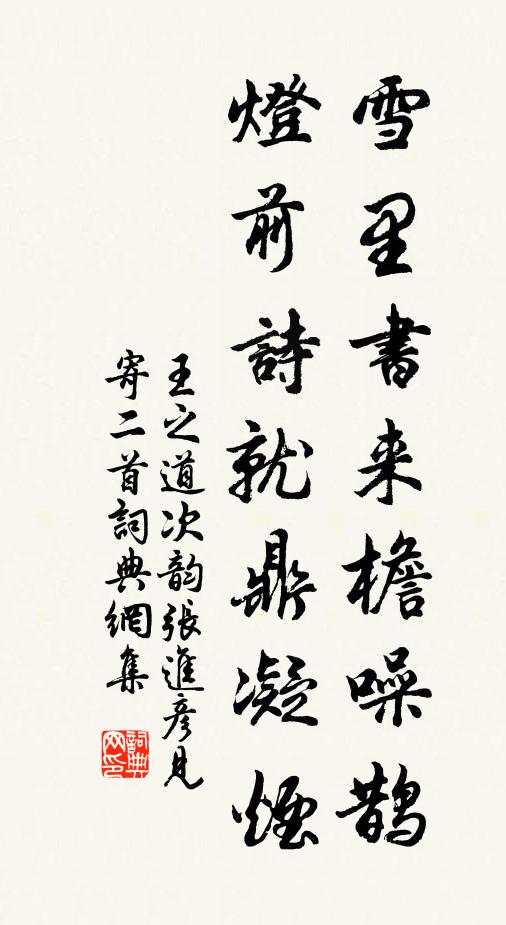 雪里書来檐噪鵲
燈前詩就鼎凝煙
王之道次韵張進彦見
寄二首詞典網集
詞典
网印